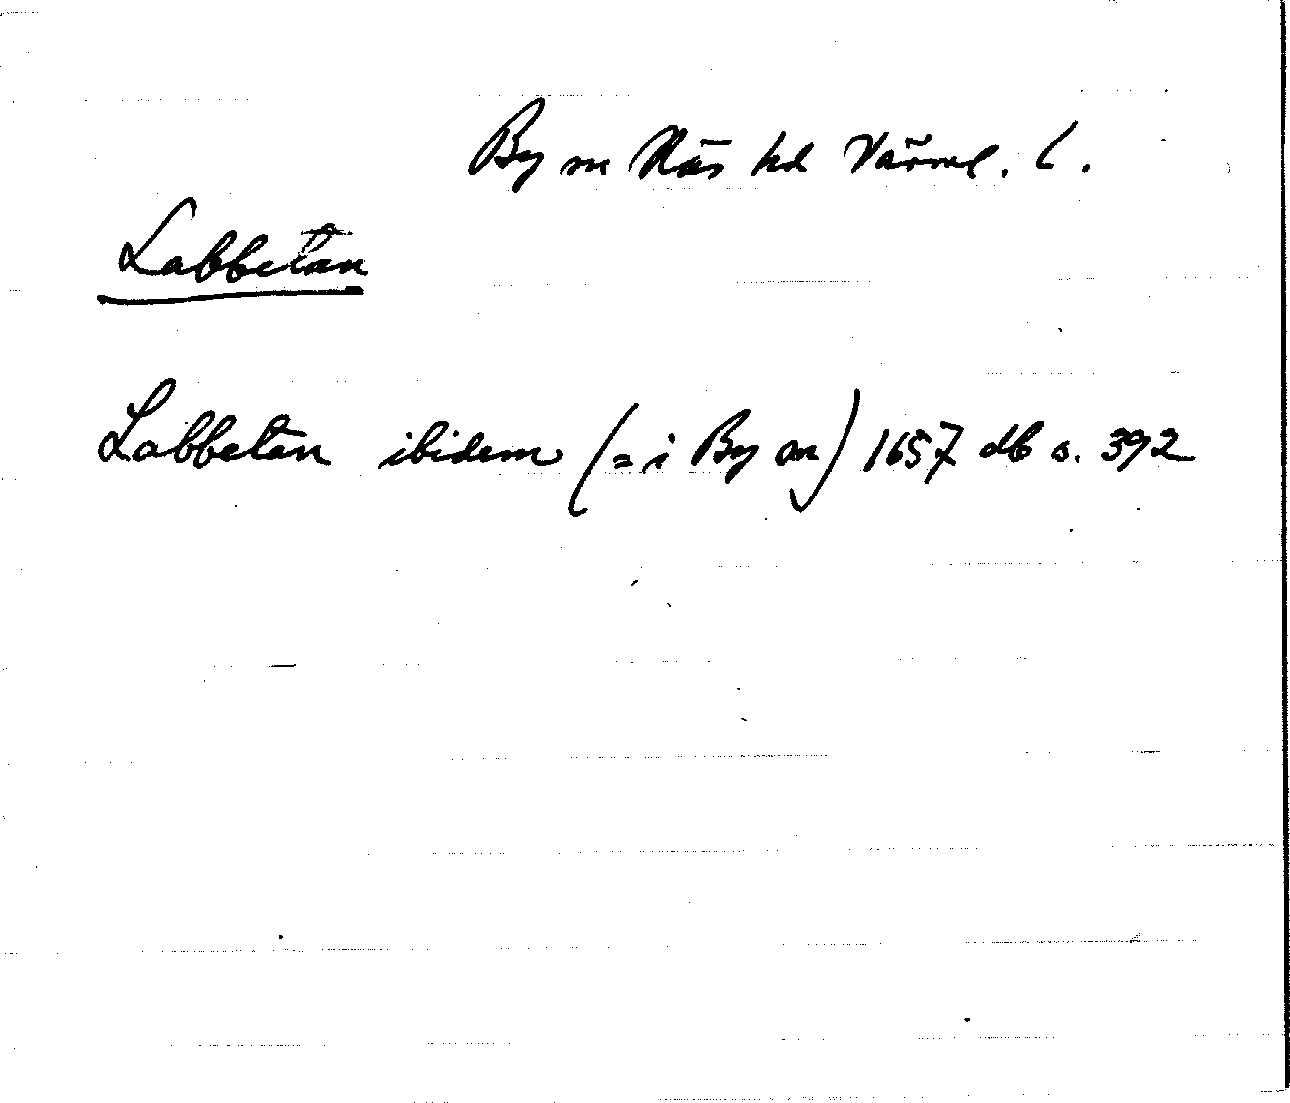 By sn Näs hd Värml. l.
Labbetan
Labbetan ibidem (= i By sn) 1657 db s. 392